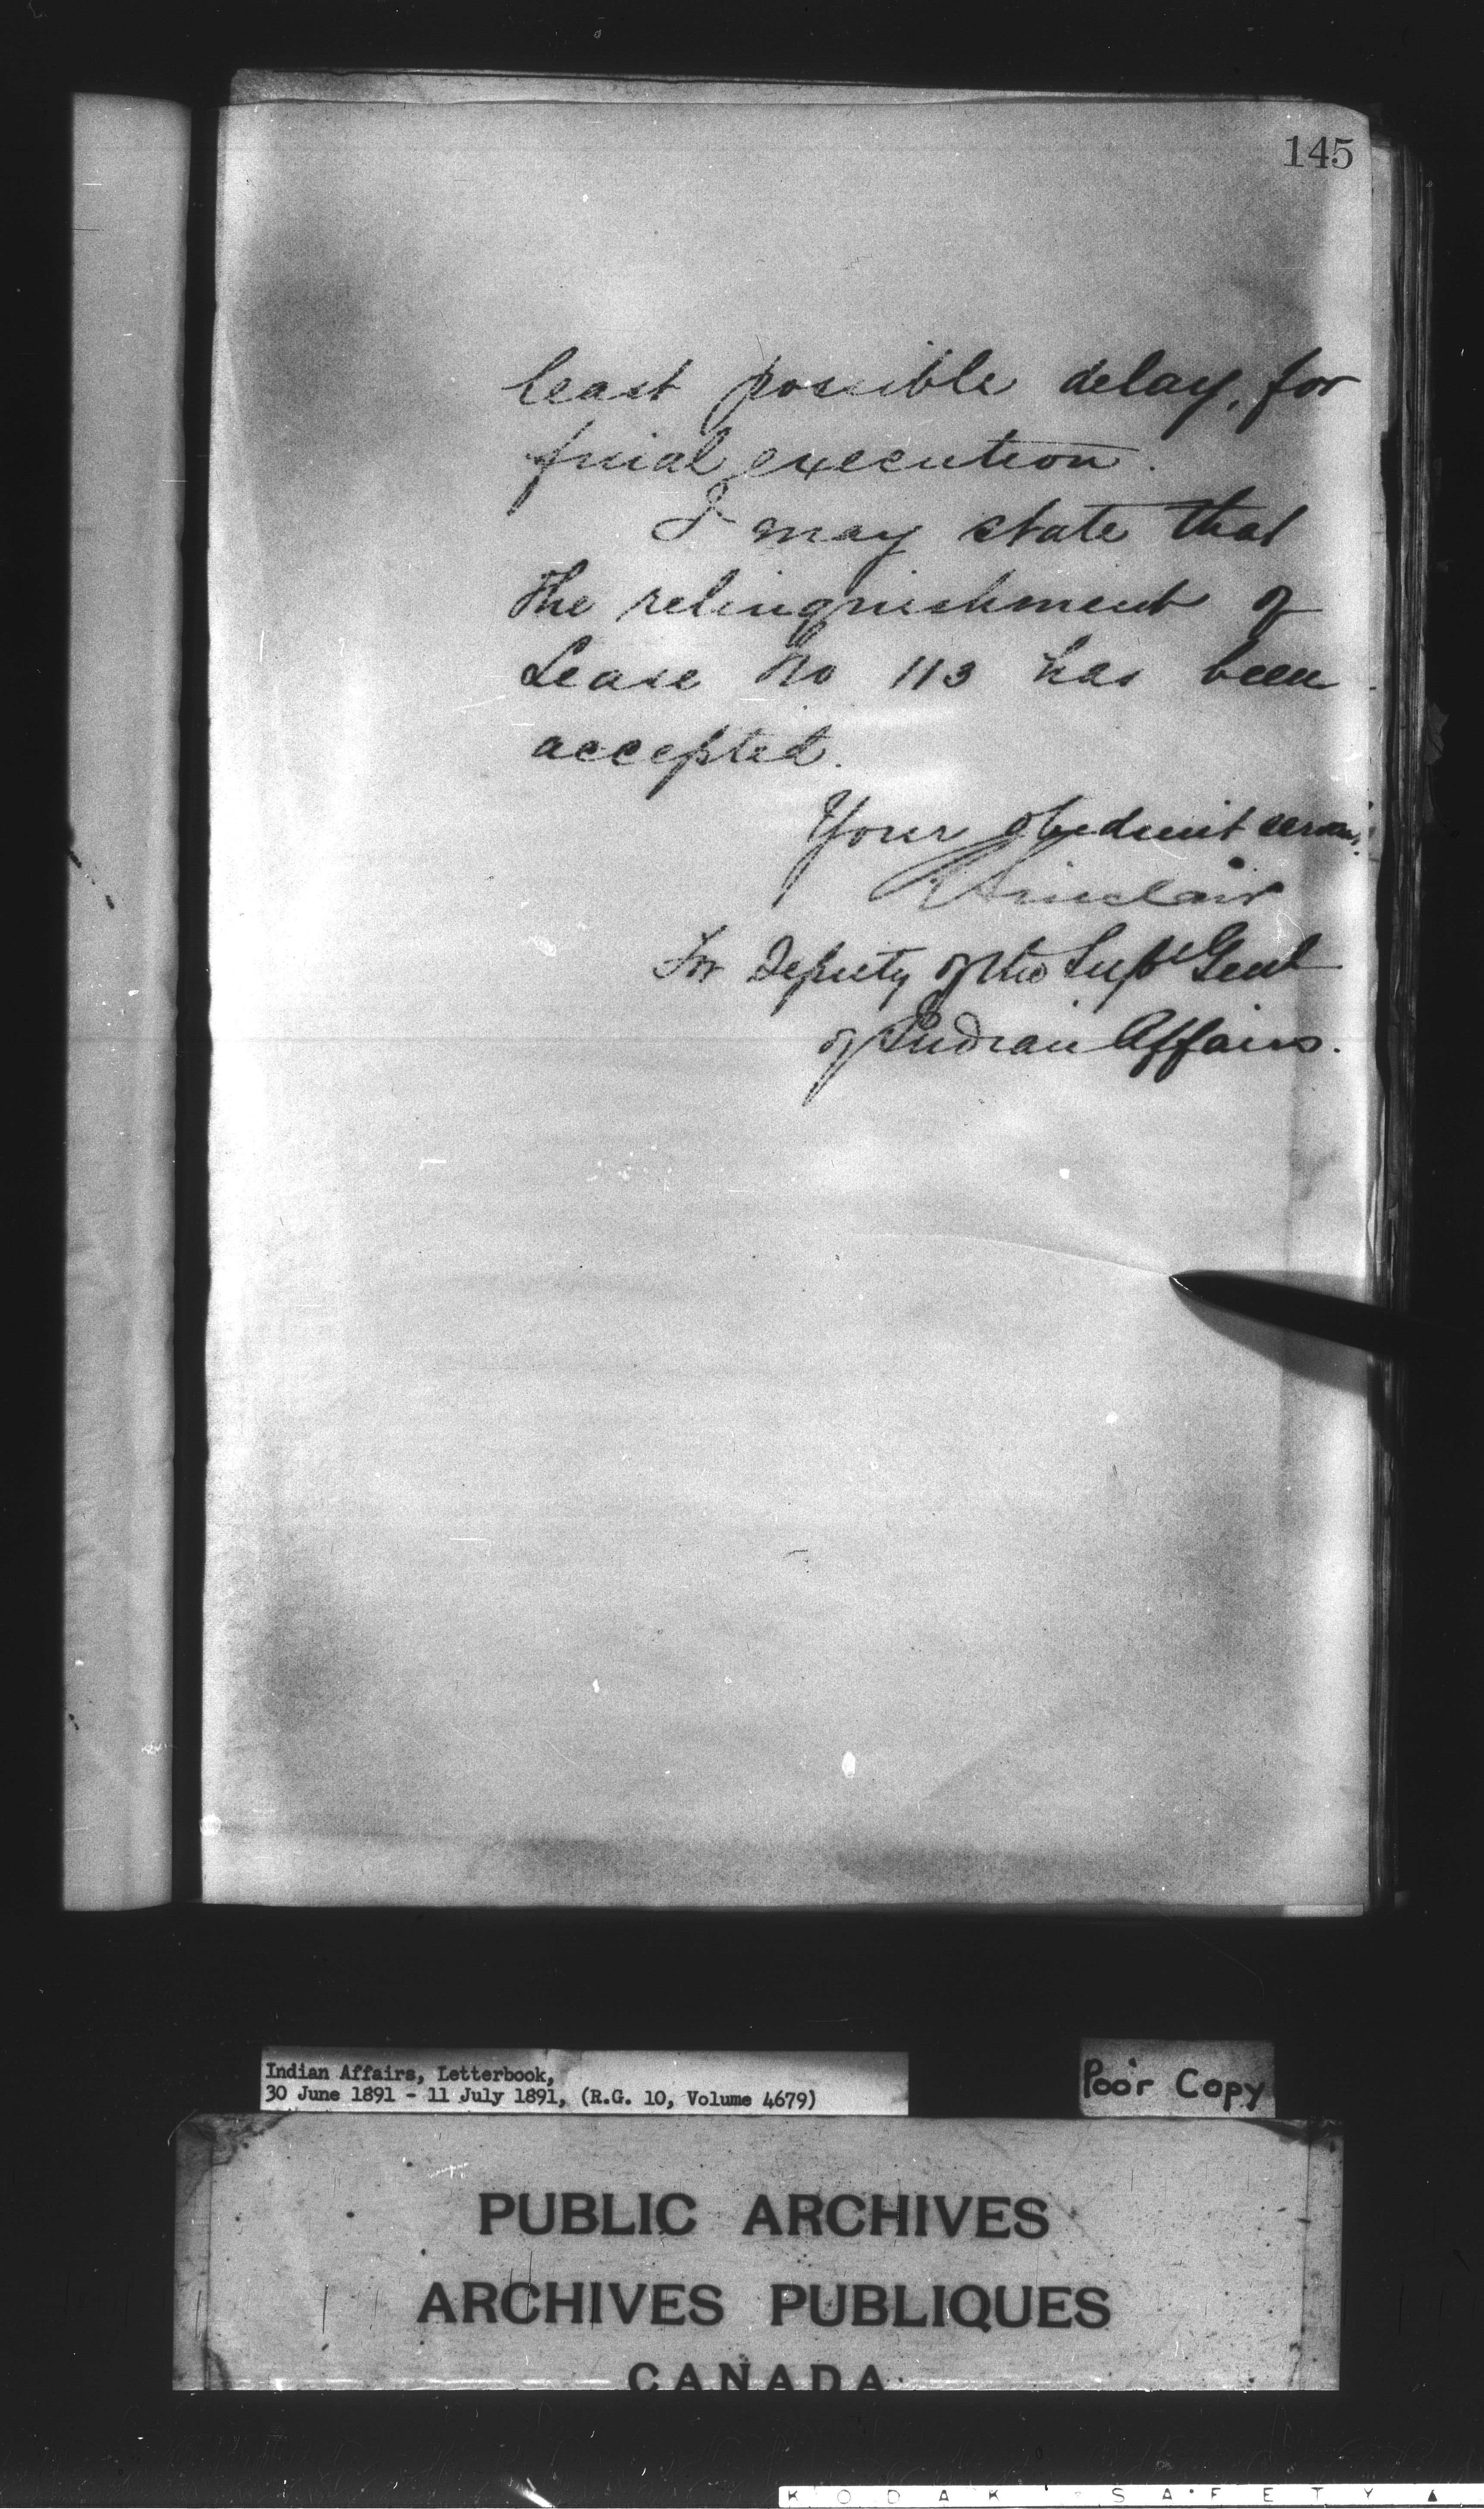 145
least possible delay, for
final execution.
I may state that
the relinquishment of
Lease No 113 has been
accepted.
Your obedient servant
Sinclair
For Deputy of the Supt Genl
of Indian Affairs.
Indian Affairs, Letterbook,
30 June 1891 - 11 July 1891, (R.G. 10, Volume 4679)
Poor Copy
PUBLIC ARCHIVES
ARCHIVES PUBLIQUES
CANADA
KODAK SAFETY